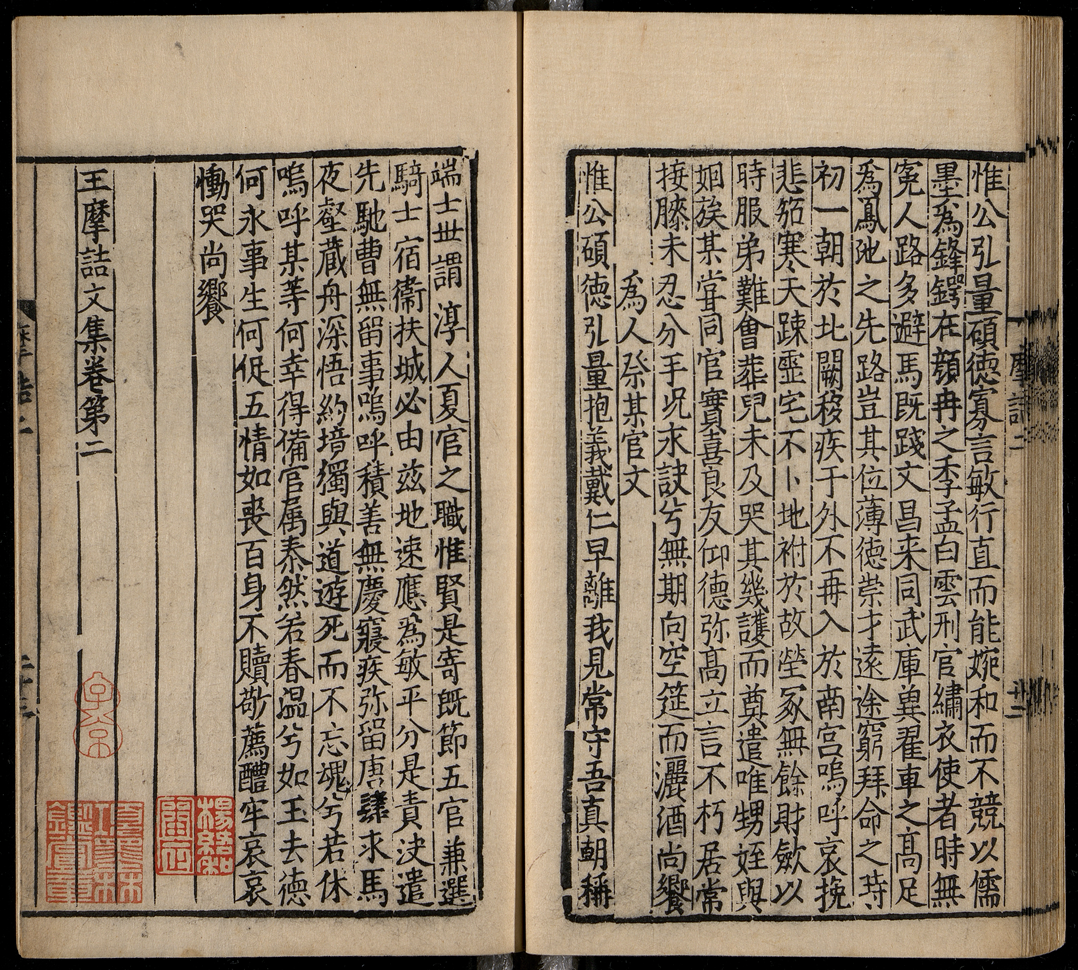 惟公弘量碩德寡言敏行直而能婉和而不競以儒
墨為鋒鍔在顔冉之季孟白雲刑官繡衣使者時無
寃人路多避馬既踐文昌来同武庫㒷翟車之髙足
為鳳池之先路豈其位薄德崇才遠途窮拜命之時
初一朝於北闕移疾于外不再入於南宫嗚呼哀挽
悲笳寒天踈靈宅不卜地祔於故塋冢無餘財歛以
時服弟難會葬兒未及哭其幾護而奠遣唯甥姪與
姻族某甞同官實喜良友仰德弥髙立言不朽居常
接膝未忍分手况求訣兮無期向空筵而灑酒尚饗
為人祭某官文
惟公碩德弘量抱義戴仁早離我見常守吾真朝稱
摩詰二
廿二
端士世謂淳人夏官之職惟賢是寄既節五官兼選
騎士宿衞扶城必由兹地速應為敏平分是責决遣
先馳曹無留事嗚呼積善無慶寢疾弥留唐肆求馬
夜壑蔵舟深悟約培獨與道遊死而不忘魂兮若休
嗚呼某等何幸得備官属泰然若春温兮如玉去德
何永事生何促五情如喪百身不贖敬薦醴牢哀哀
慟哭尚饗
王摩詰文集卷第二
子京
楊紹和
項墨林鑑賞章